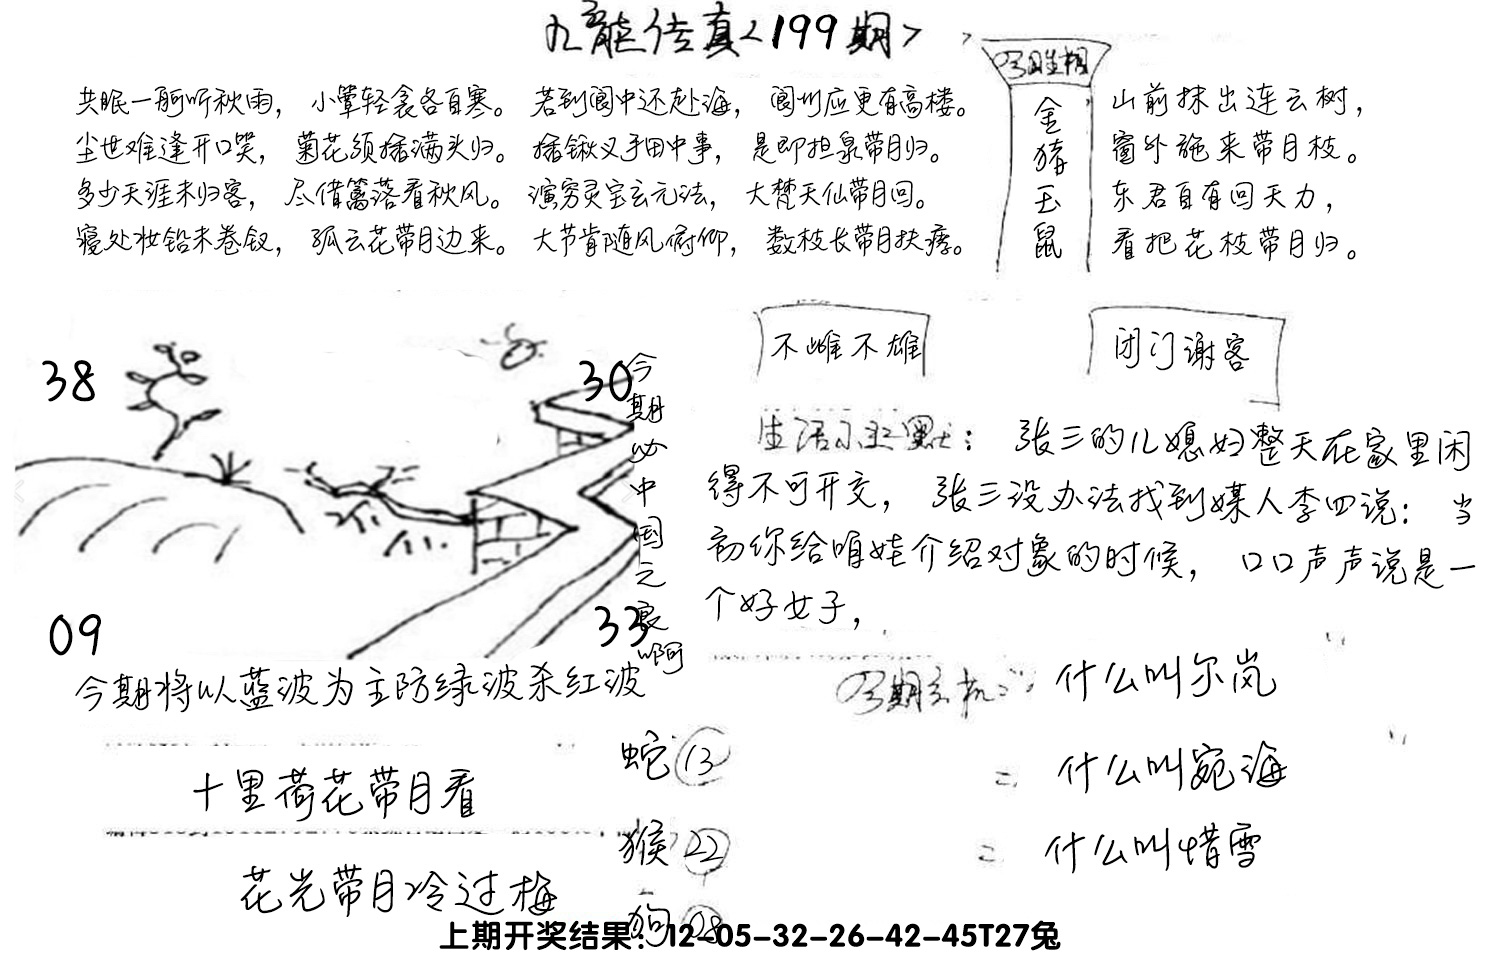 九龍传真<199期>
共眠一舸听秋雨，小簟轻衾各自寒。若到阆中还赴海，阆州应更有高楼。
尘世难逢开口笑，菊花须插满头归。插锹叉手田中事，是即担泉带月归。
多少天涯未归客，尽借篱落看秋风。演穷灵宝玄元法，大梵天仙带月回。
寝处妆铅未卷钗，孤云花带月边来。大节肯随风俯仰，数枝长带月扶疏。
金猪玉鼠
山前抹出连云树，
窗外施来带月枝。
东君自有回天力，
看把花枝带月归。
不雌不雄
闭门谢客
38
30
09
33
今期必中国元豪啊
今期将以蓝波为主防绿波杀红波
生活小幽默：张三的儿媳妇整天在家里闲
得不可开交，张三没办法找到媒人李四说：当
初你给咱娃介绍对象的时候，口口声声说是一
个好女子，
今期玄机：什么叫尔岚
= 什么叫宛海
= 什么叫惜雪
十里荷花带月看
花光带月冷过梅
蛇13
猴22
狗08
上期开奖结果：12-05-32-26-42-45T27兔